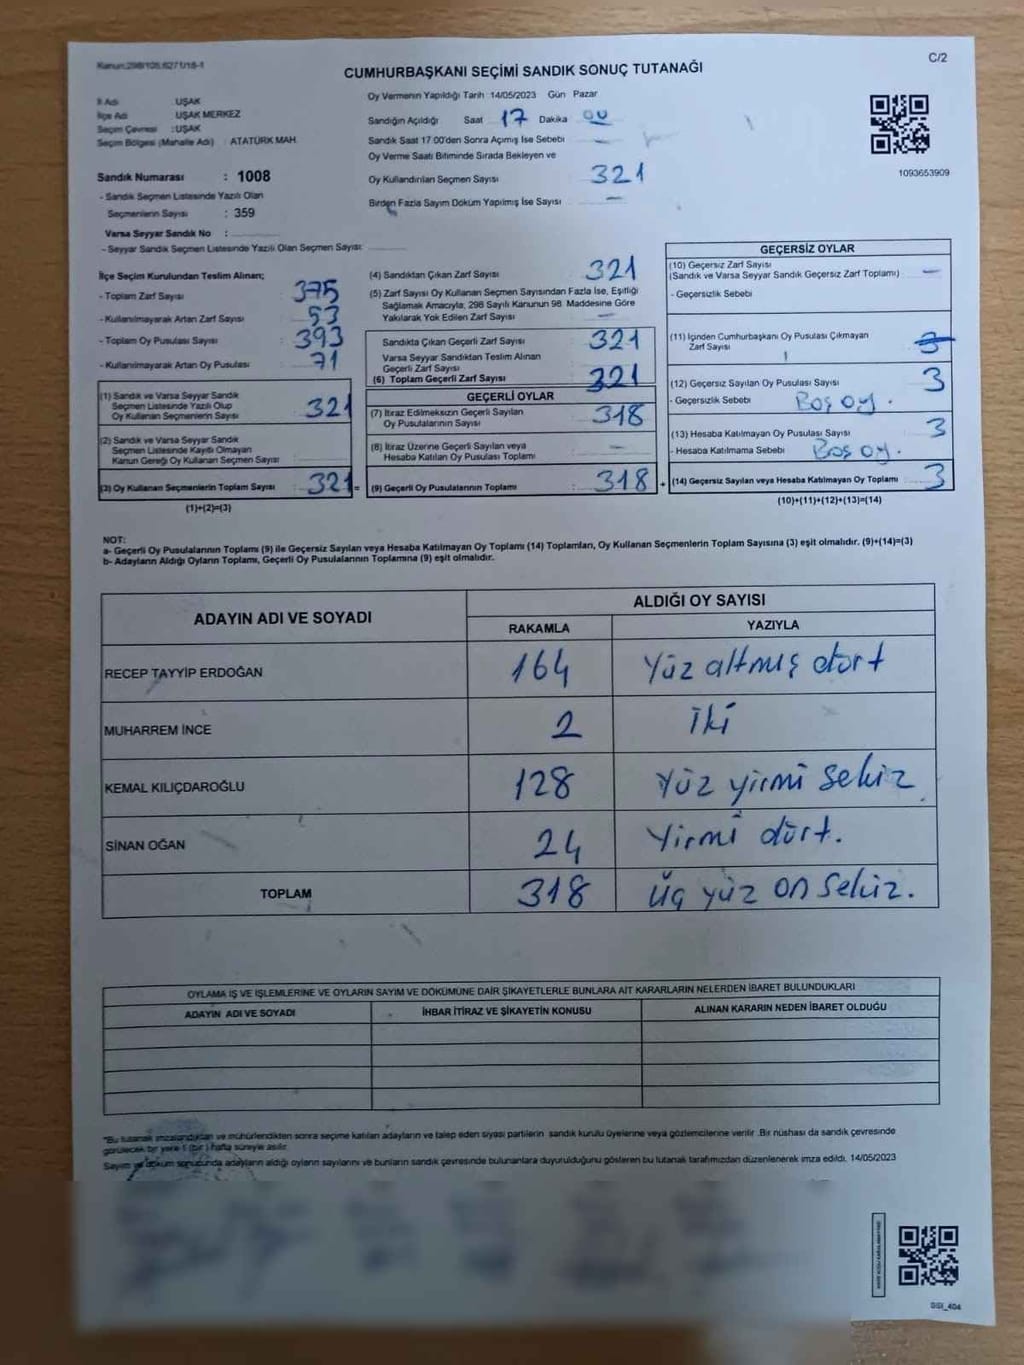 Kanun:298/105,6271/18-1
C/2
CUMHURBAŞKANI SEÇİMİ SANDIK SONUÇ TUTANAĞI
İl Adı : UŞAK
İlçe Adı : UŞAK MERKEZ
Seçim Çevresi : UŞAK
Seçim Bölgesi (Mahalle Adı) : ATATÜRK MAH.
Sandık Numarası : 1008
- Sandık Seçmen Listesinde Yazılı Olan
Seçmenlerin Sayısı : 359
Varsa Seyyar Sandık No :
- Seyyar Sandık Seçmen Listesinde Yazılı Olan Seçmen Sayısı:
Oy Vermenin Yapıldığı Tarih 14/05/2023 Gün Pazar
Sandığın Açıldığı Saat 17 Dakika 00
Sandık Saat 17.00'den Sonra Açımış İse Sebebi —
Oy Verme Saati Bitiminde Sırada Bekleyen ve
Oy Kullandırılan Seçmen Sayısı 321
Birden Fazla Sayım Döküm Yapılmış İse Sayısı —
1093653909
İlçe Seçim Kurulundan Teslim Alınan;
- Toplam Zarf Sayısı 375
- Kullanılmayarak Artan Zarf Sayısı 53
- Toplam Oy Pusulası Sayısı : 393
- Kullanılmayarak Artan Oy Pusulası : 71
(1) Sandık ve Varsa Seyyar Sandık
Seçmen Listesinde Yazılı Olup
Oy Kullanan Seçmenlerin Sayısı 321
(2) Sandık ve Varsa Seyyar Sandık
Seçmen Listesinde Kayıtlı Olmayan
Kanun Gereği Oy Kullanan Seçmen Sayısı
(3) Oy Kullanan Seçmenlerin Toplam Sayısı 321 =
(1)+(2)=(3)
(4) Sandıktan Çıkan Zarf Sayısı 321
(5) Zarf Sayısı Oy Kullanan Seçmen Sayısından Fazla İse, Eşitliği
Sağlamak Amacıyla, 298 Sayılı Kanunun 98. Maddesine Göre
Yakılarak Yok Edilen Zarf Sayısı —
Sandıkta Çıkan Geçerli Zarf Sayısı 321
Varsa Seyyar Sandıktan Teslim Alınan
Geçerli Zarf Sayısı
(6) Toplam Geçerli Zarf Sayısı 321
GEÇERLİ OYLAR
(7) İtiraz Edilmeksizin Geçerli Sayılan
Oy Pusulalarının Sayısı : 318
(8) İtiraz Üzerine Geçerli Sayılan veya
Hesaba Katılan Oy Pusulası Toplamı —
(9) Geçerli Oy Pusulalarının Toplamı : 318 +
GEÇERSİZ OYLAR
(10) Geçersiz Zarf Sayısı
(Sandık ve Varsa Seyyar Sandık Geçersiz Zarf Toplamı) —
- Geçersizlik Sebebi
(11) İçinden Cumhurbaşkanı Oy Pusulası Çıkmayan
Zarf Sayısı 3
(12) Geçersiz Sayılan Oy Pusulası Sayısı 3
- Geçersizlik Sebebi Boş oy.
(13) Hesaba Katılmayan Oy Pusulası Sayısı 3
- Hesaba Katılmama Sebebi Boş oy.
(14) Geçersiz Sayılan veya Hesaba Katılmayan Oy Toplamı 3
(10)+(11)+(12)+(13)=(14)
NOT:
a- Geçerli Oy Pusulalarının Toplamı (9) ile Geçersiz Sayılan veya Hesaba Katılmayan Oy Toplamı (14) Toplamları, Oy Kullanan Seçmenlerin Toplam Sayısına (3) eşit olmalıdır. (9)+(14)=(3)
b- Adayların Aldığı Oyların Toplamı, Geçerli Oy Pusulalarının Toplamına (9) eşit olmalıdır.
ADAYIN ADI VE SOYADI
ALDIĞI OY SAYISI
RAKAMLA YAZIYLA
RECEP TAYYİP ERDOĞAN 164 Yüz altmış dört
MUHARREM İNCE 2 İki
KEMAL KILIÇDAROĞLU 128 Yüz yirmi sekiz
SİNAN OĞAN 24 Yirmi dört.
TOPLAM 318 Üç yüz on sekiz.
OYLAMA İŞ VE İŞLEMLERİNE VE OYLARIN SAYIM VE DÖKÜMÜNE DAİR ŞİKAYETLERLE BUNLARA AİT KARARLARIN NELERDEN İBARET BULUNDUKLARI
ADAYIN ADI VE SOYADI İHBAR İTİRAZ VE ŞİKAYETİN KONUSU ALINAN KARARIN NEDEN İBARET OLDUĞU
*Bu tutanak imzalandıktan ve mühürlendikten sonra seçime katılan adayların ve talep eden siyasi partilerin sandık kurulu üyelerine veya gözlemcilerine verilir .Bir nüshası da sandık çevresinde
görülecek bir yere 1 (bir ) hafta süreyle asılır.
Sayım ve döküm sonucunda adayların aldığı oyların sayılarını ve bunların sandık çevresinde bulunanlara duyurulduğunu gösteren bu tutanak tarafımızdan düzenlenerek imza edildi. 14/05/2023